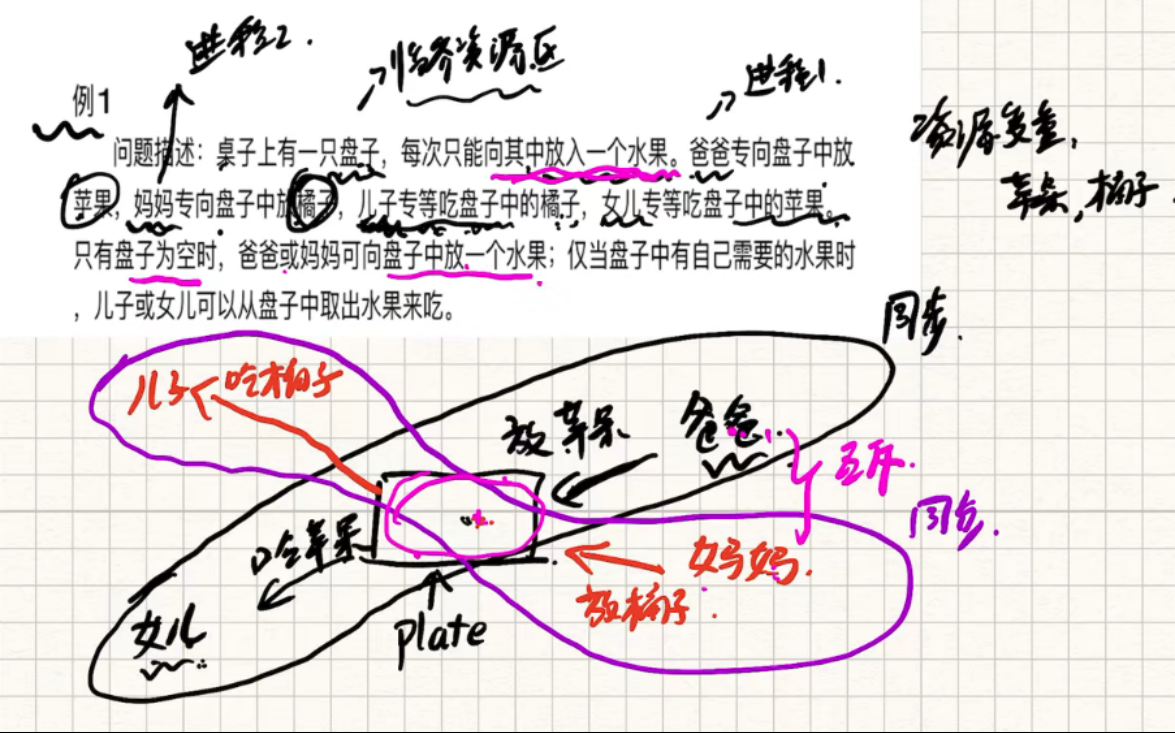 进程2.
临界资源区
进程1.
例1
资源变量,
苹果,橘子.
问题描述：桌子上有一只盘子，每次只能向其中放入一个水果。爸爸专向盘子中放
苹果，妈妈专向盘子中放橘子，儿子专等吃盘子中的橘子，女儿专等吃盘子中的苹果。
只有盘子为空时，爸爸或妈妈可向盘子中放一个水果；仅当盘子中有自己需要的水果时
，儿子或女儿可以从盘子中取出水果来吃。
同步.
儿子 吃橘子
放苹果 爸爸
互斥.
同步.
吃苹果
妈妈.
放橘子.
女儿
plate